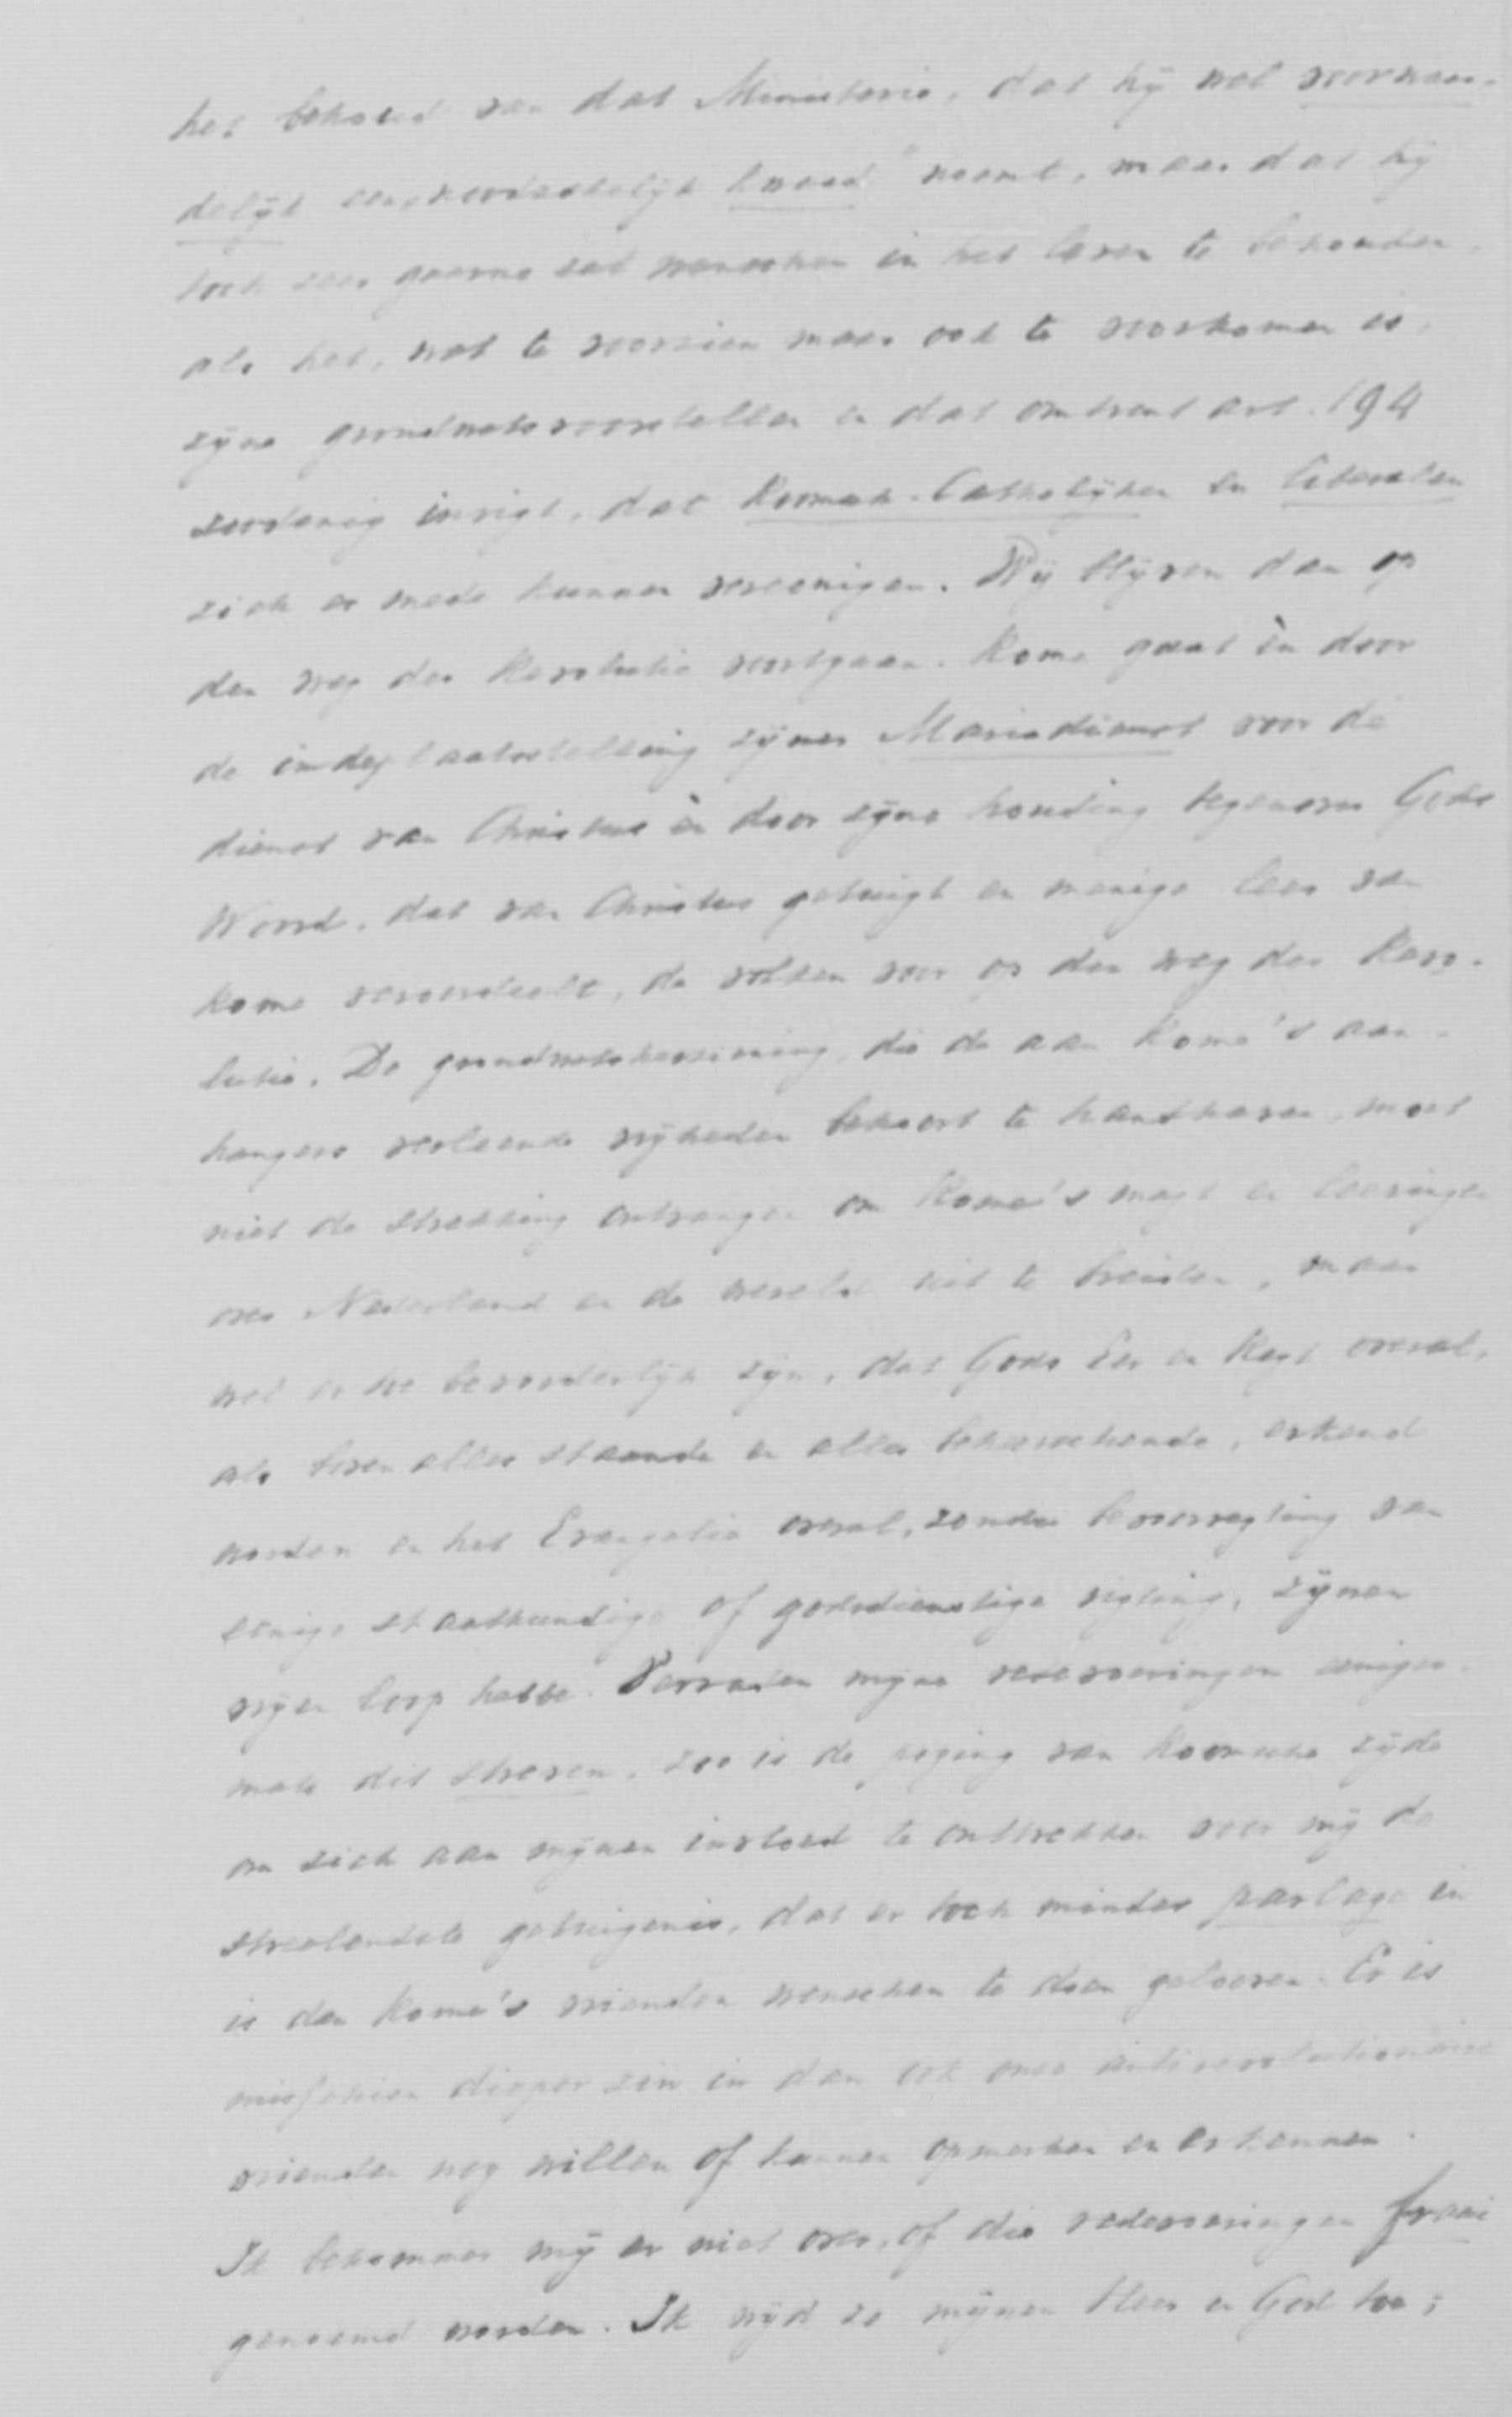 het behoud van dat Ministerie, dat hij wel voornaa-
delijk een "noodzakelijk kwaad" noemt, maar dat hij
toch zeer gaarne zal wenschen in het leven te behouden,
als het, wat te voorzien maar ook te voorkomen is,
zijne grondwetsvoorstellen en dat omtrent art. 194
zoodanig inrigt, dat Roomsch-Catholijken en liberalen
zich er mede kunnen vereenigen. Wij blijven dan op
den weg der Revolutie voortgaan. Rome gaat èn door
de indeplaatsstelling zijner Mariadienst voor de
dienst van Christus èn door zijne houding tegenover Gods
Woord, dat van Christus getuigt en menige leer van
Rome veroordeelt, de volken voor op den weg der Revo-
lutie. De grondwetsherziening, die de aan Rome's aan-
hangers verleende vrijheden behoort te handhaven, moet
niet de strekking ontvangen om Rome's magt en leeringen
over Nederland en de wereld uit te breiden, maar
wel er toe bevorderlijk zijn, dat Gods Eer en Regt overal,
als boven alles staande en alles beheerschende, erkend
worden en het Evangelie overal, zonder bevoorregting van
eenige staatkundige of godsdienstige rigting, zijnen
vrijen loop hebbe. Verraden mijne redevoeringen eeniger-
mate dit streven, zoo is de poging van Roomsche zijde
om zich aan mijnen invloed te onttrekken voor mij de
streelendste getuigenis, dat er toch minder partage in
is dan Rome's vrienden wenschen te doen gelooven. Er is
misschien dieper zin in dan ook onze antirevolutionaire
vrienden nog willen of kunnen opmerken en erkennen.
Ik bekommer mij er niet over, of die redevoeringen fraai
genoemd worden. Ik wijd ze mijnen Heer en God toe;